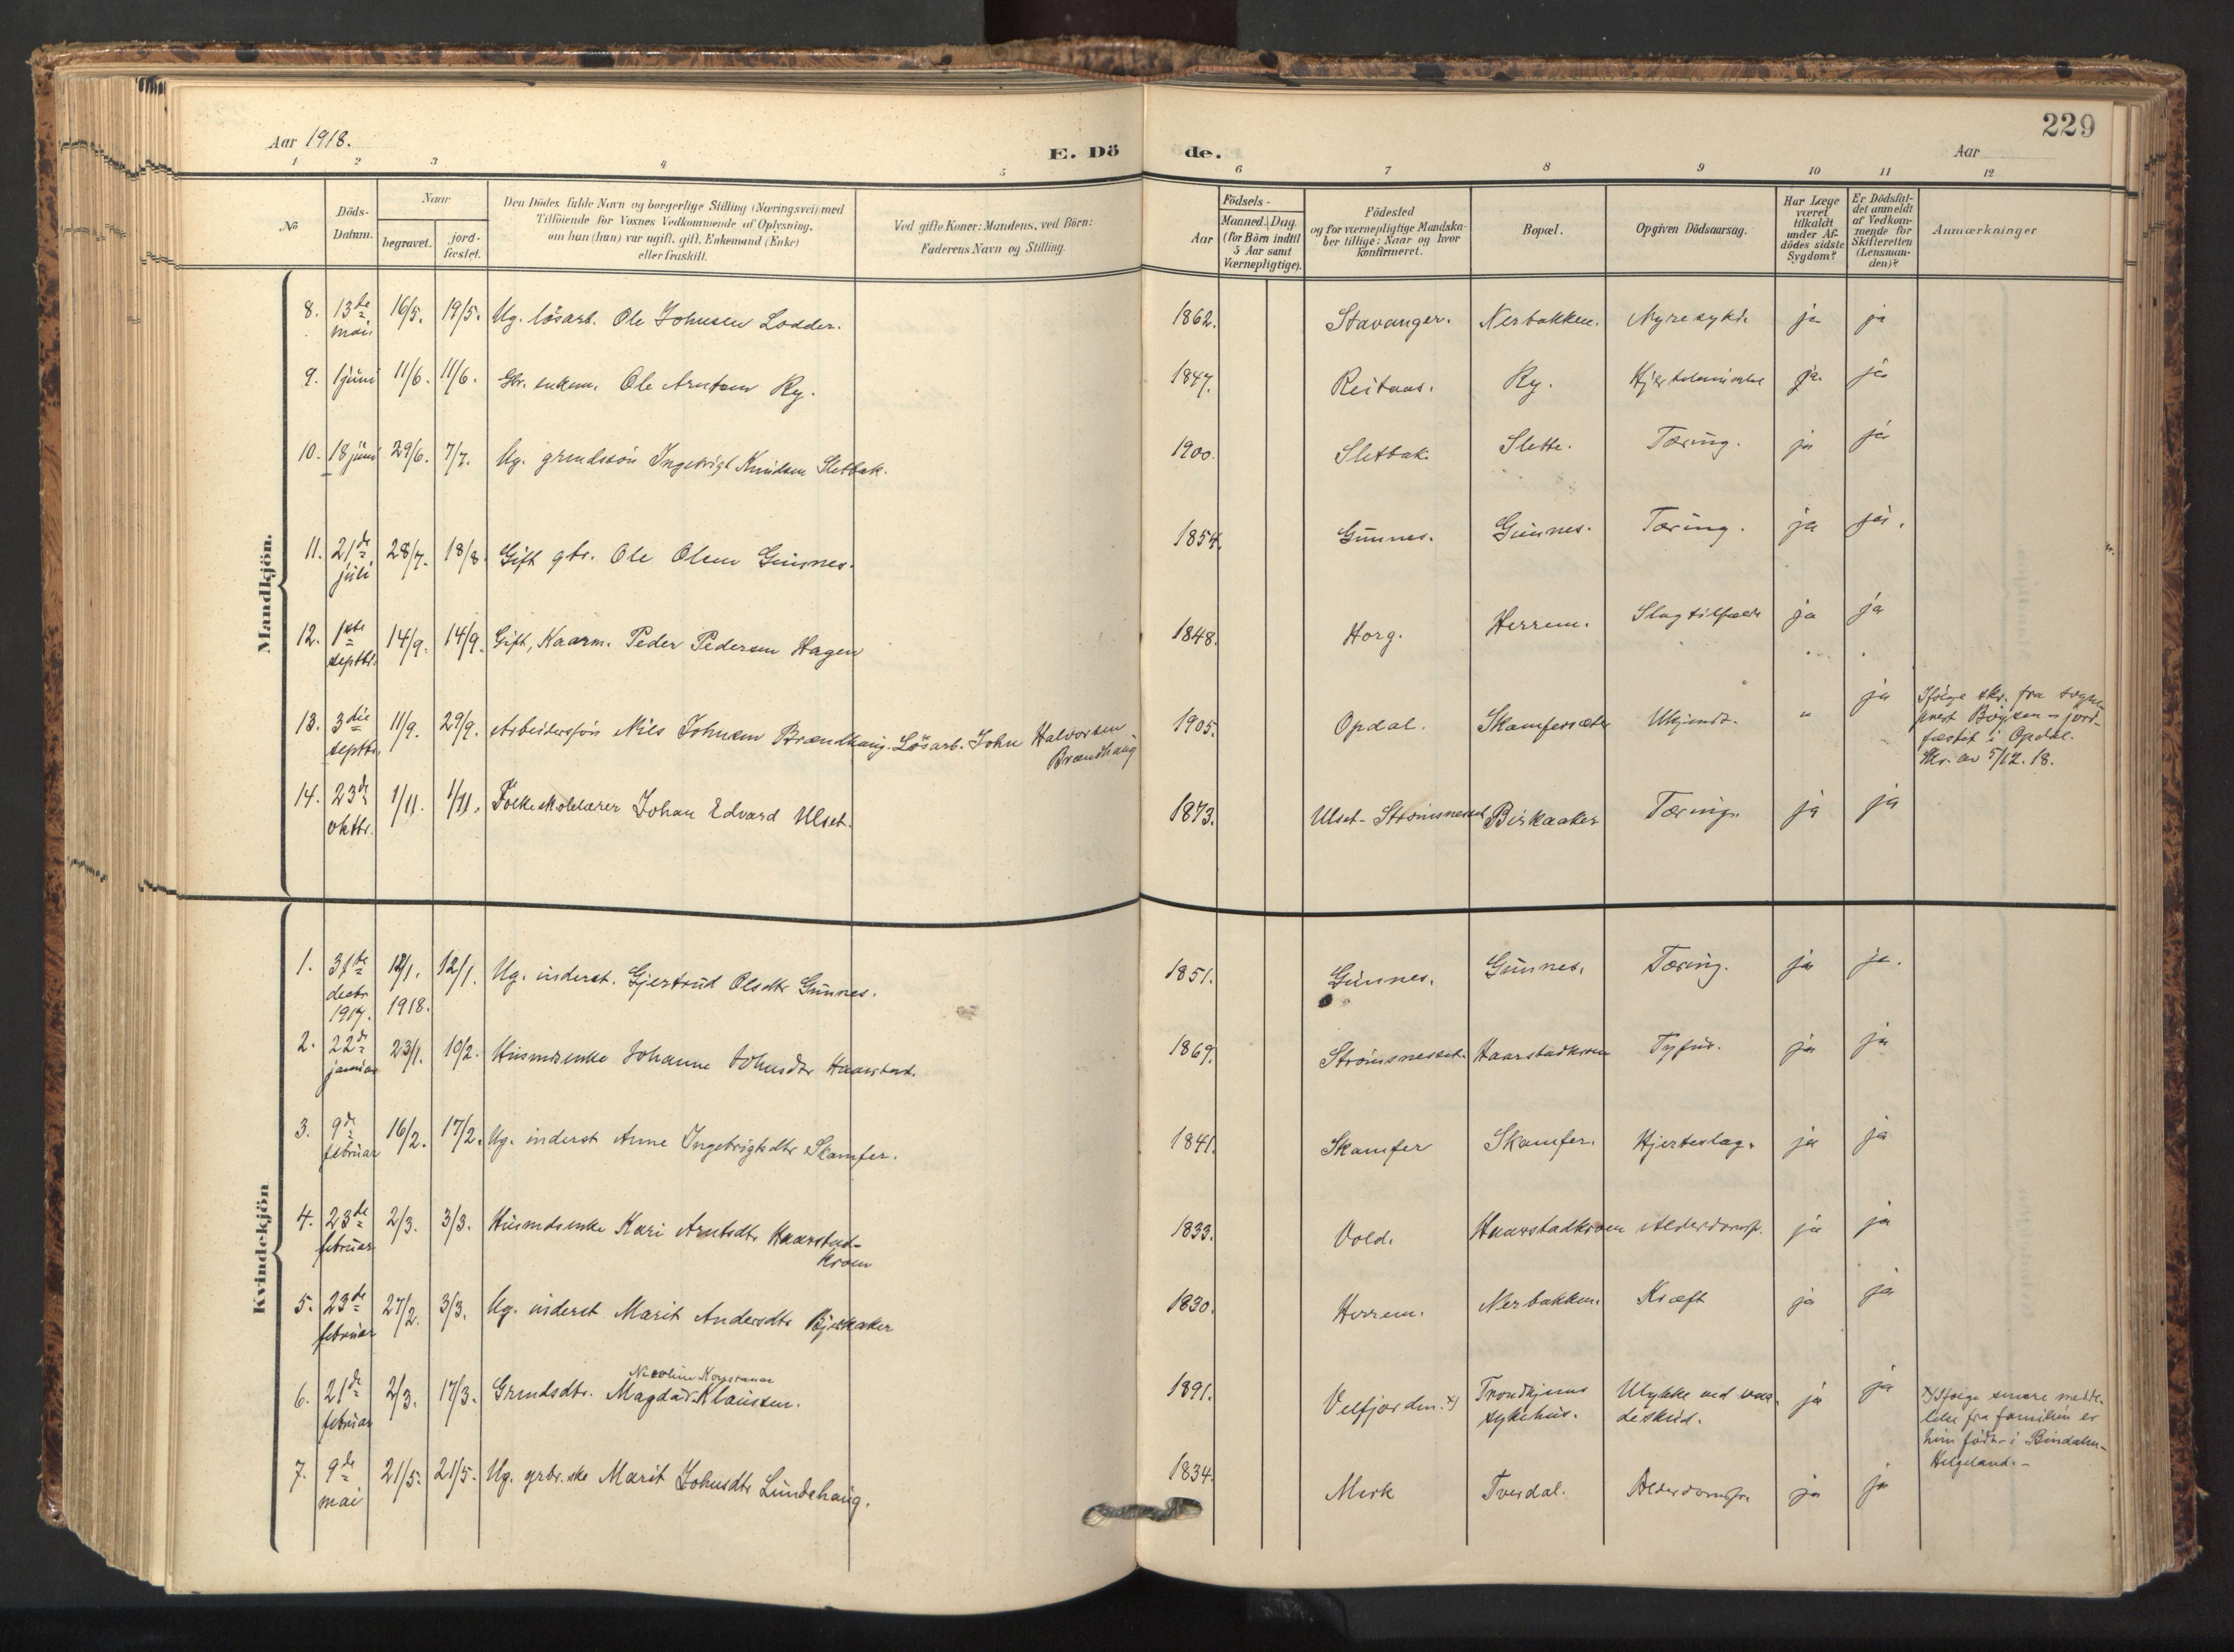 229
Aar 1918.
E. Dö de.
Aar
1 2 3 4 5 6 7 8 9 10 11 12
№
Döds-
Datum.
Naar
begravet.
jord-
fæstet.
Den Dödes fulde Navn og borgerlige Stilling (Næringsvei) med
Tilföiende for Voxnes Vedkommende af Oplysning,
om han (hun) var ugift, gift, Enkemand (Enke)
eller fraskilt.
Ved gifte Koner: Mandens, ved Börn:
Faderens Navn og Stilling.
Födsels-
Aar
Maaned. Dag.
(for Börn indtil
5 Aar samt
Værnepligtige).
Födested
og for værnepligtige Mandska-
ber tillige: Naar og hvor
konfirmeret.
Bopæl.
Opgiven Dödsaarsag.
Har Læge
været
tilkaldt
under Af-
dödes sidste
Sygdom?
Er Dödsfal-
det anmeldt
af Vedkom-
mende for
Skifteretten
(Lensman-
den)?
Anmærkninger
Mandkjön.
8. 13de mai 16/5. 19/5. Ug. lösarb. Ole Johnsen Lodder. 1862. Stavanger. Nerbakken. Nyresykd. ja ja
9. 1 juni 11/6. 11/6. Gbr. enkem. Ole Arntsen Ry. 1847. Reitaas. Ry. ja ja
10. 18 juni 29/6. 7/7. Ug. grmdssön Ingebrigt Knudsen Sletbak. 1900. Sletbak. Slette. Tæring. ja ja
11. 21de juli 28/7. 18/8. Gift gbr. Ole Olsen Gunnes. 1854. Gunnes. Gunnes. Tæring. ja ja.
12. 1ste septbr. 14/9. 14/9. Gift, Kaarm. Peder Pedersen Hagen 1848. Horg. Herrem. Slagtilfælde ja ja
13. 3die septbr. 11/9. 29/9. Arbeiderssön Nils Johnsen Brændhaug. Lösarb. John Halvorsen Brændhaug 1905. Opdal. Skamfersæter Ukjendt. " ja Ifölge skr. fra sogne-
prest Böysen - jord-
fæstet i Opdal.
Skr. av 5/12. 18.
14. 23de oktbr. 1/11. 1/11. Folkeskolelærer Johan Edvard Ulset. 1873. Ulset - Strömsnesset Birkaaker Tæring. ja ja
Kvindekjön
1. 31te decbr. 1917. 12/1. 1918. 12/1. Ug. inderst. Gjertrud Olsdtr Gunnes. 1851. Gunnes. Gunnes. Tæring. ja ja.
2. 22de januar 23/1. 10/2. Husmdsenke Johanne Johnsdtr Haarstad. 1869. Strömsnesset. Haarstadkroen Tyfus. ja ja
3. 9de februar 16/2. 17/2. Ug. inderst Anne Ingebrigtsdtr Skamfer. 1841. Skamfer Skamfer. Hjerteslag. ja ja
4. 23de februar 2/3. 3/3. Husmdsenke Kari Arntsdtr Haarstad-
kroen 1833. Vold. Haarstadkroen Alderdomssv. ja ja
5. 23de februar 27/2. 3/3. Ug. inderst Marit Andersdtr Bjerkaker 1830. Herrem. Nerbakken. Kræft ja ja
6. 21de februar 2/3. 17/3. Grmdsdtr. Magda Klausen. 1891. Velfjorden. x) Trondhjems
sykehus. Ulykke ved vaa-
deskud. ja ja x) Ifölge senere medde-
lelse fra familien er
hun födt i Bindalen-
Helgeland. -
7. 9de mai 21/5. 21/5. Ug. grbr.ske Marit Johnsdtr Lundehaug. 1834. Merk Tverdal. ja ja